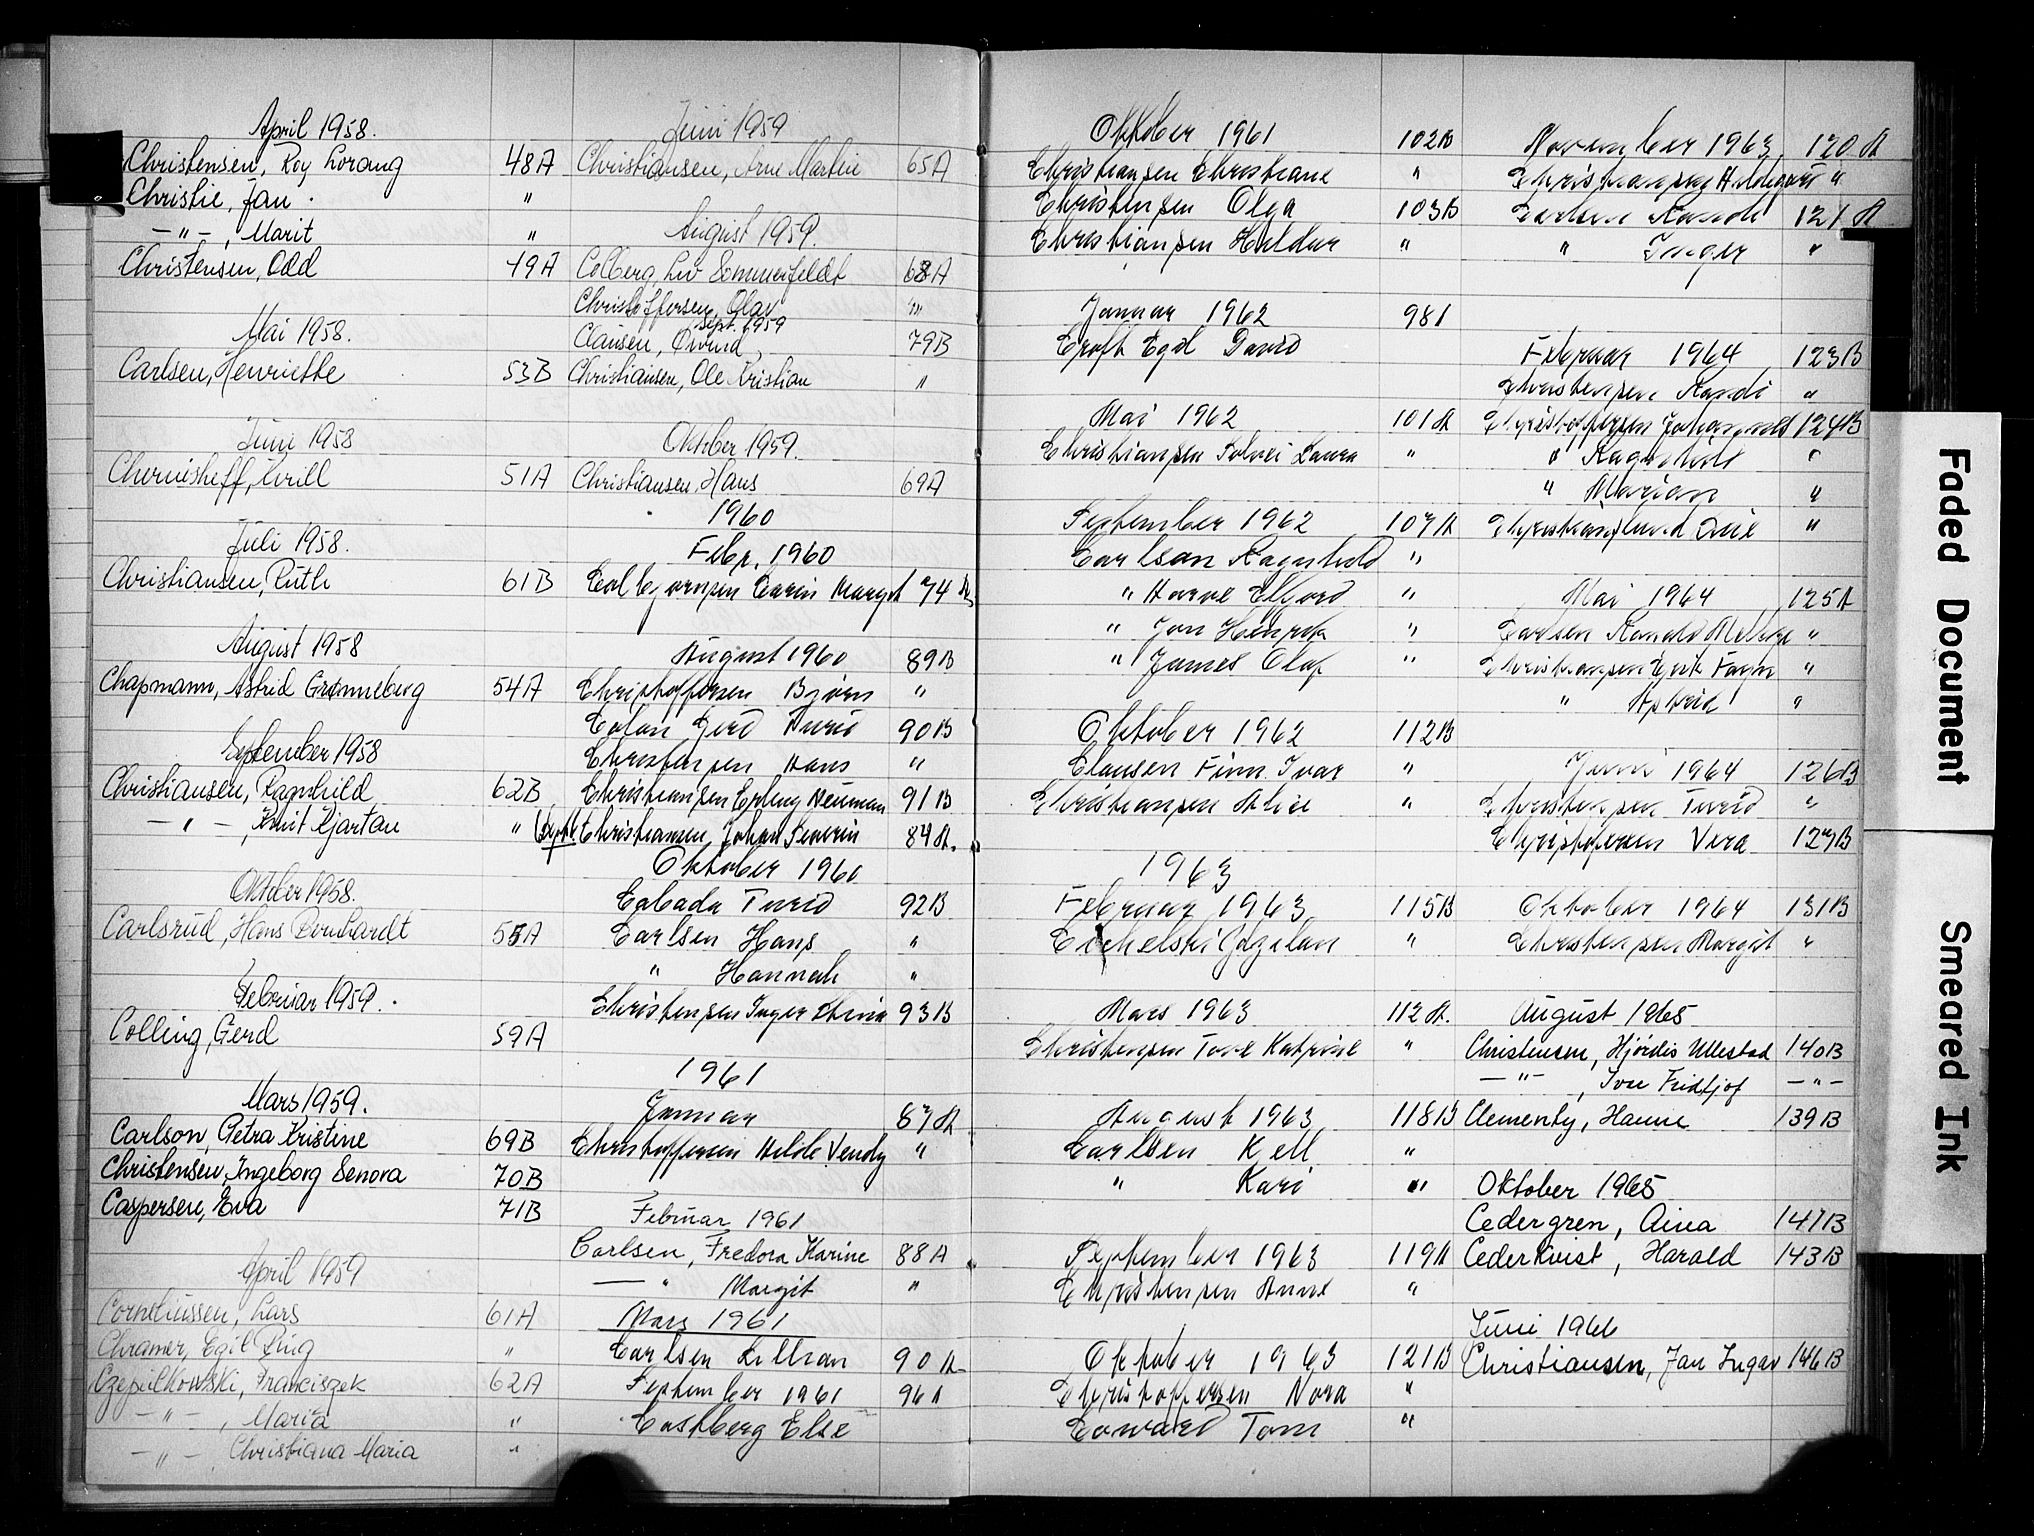 April 1958.
Christensen, Roy Lorang 48A
Christie, Jan. "
— " — , Marit "
Christensen, Odd 49A
Mai 1958.
Carlsen, Henriette 53B
Juni 1958
Chernisheff, Kirill 51A
Juli 1958.
Christiansen, Ruth 61B
August 1958
Chapmann, Astrid Grønneberg 54A
September 1958
Christiansen, Ragnhild 62B
— " — , Knut Kjartan "
Oktober 1958.
Carlsrud, Hans Bernhardt 55A
Februar 1959.
Colling, Gerd 59A
Mars 1959.
Carlson, Petra Kristine 69B
Christensen, Ingeborg Senora 70B
Caspersen, Eva 71B
April 1959
Corneliussen, Lars 61A
Chramer, Egil Ring "
Czepulkowski, Franciszek 62A
— " — , Maria "
— " — , Christiana Maria "
Juni 1959
Christiansen, Arne Martin 65A
August 1959.
Colberg, Liv Sommerfeldt 68A
Christoffersen, Olav "
Sept. 1959
Clausen, Øivind, 79B
Christiansen, Ole Kristian "
Oktober 1959.
Christiansen, Hans 69A
1960
Febr. 1960
Colbjørnsen Carin Margit 74A
August 1960 89B
Christoffersen Bjørn "
Colan Gerd Turid 90B
Christensen Hans "
Christiansen Erling Neuman 91B
(Sept.) Christiansen, Johan Severin 84A.
Oktober 1960
Cabada Turid 92B
Carlsen Hans "
" Hannah "
Christensen Inger 93B
1961
Januar 87A
Christoffersen Hilde Vendy "
Februar 1961
Carlsen, Fredora Karine 88A
— " Margit "
Mars 1961
Carlsen Lillian 90A
September 1961 96A
Castberg Else
Oktober 1961 102B
Christiansen Christiane "
Christensen Olga 103B
Christiansen Haldur "
Januar 1962 981
Croft Egil David
Mai 1962 101A
Christiansen Solvei Laura "
September 1962 107A
Carlson Ragnhild "
" Harve Ellford "
" Jon Henrik "
" James Olaf "
Oktober 1962 112B
Clausen Finn Ivar "
Christiansen Alice "
1963
Februar 1963 115B
"
Mars 1963 112A.
Christensen Tove Katrine "
August 1963 118B
Carlsen Kell "
" Kari "
September 1963 119A
Christensen Anne "
Oktober 1963 121B
Christoffersen Nora "
Coward Tom "
November 1963 120A
Christiansen Hildegard "
Carlsen Randi 121A
" Inger "
Februar 1964 123B
Christensen Randi "
Christoffersen Johannes 124B
" Ragnhild "
" Marian "
Christianslund "
Mai 1964 125A
Carlsen Ronald "
Christiansen "
" Astrid "
Juni 1964 126B
Christensen Turid "
Christofersen Vera 127B
Oktober 1964 131B
Christensen Margit "
August 1965
Christensen, Hjørdis Ullestad 140B
— " — , Fridtjof — " —
Clementy, Hanne 139B
Oktober 1965
Cedergren, Aina 141B
Cederkvist, Harald 143B
Juni 1966
Christiansen, Jan Ingar 146B
Faded Document Smeared Ink